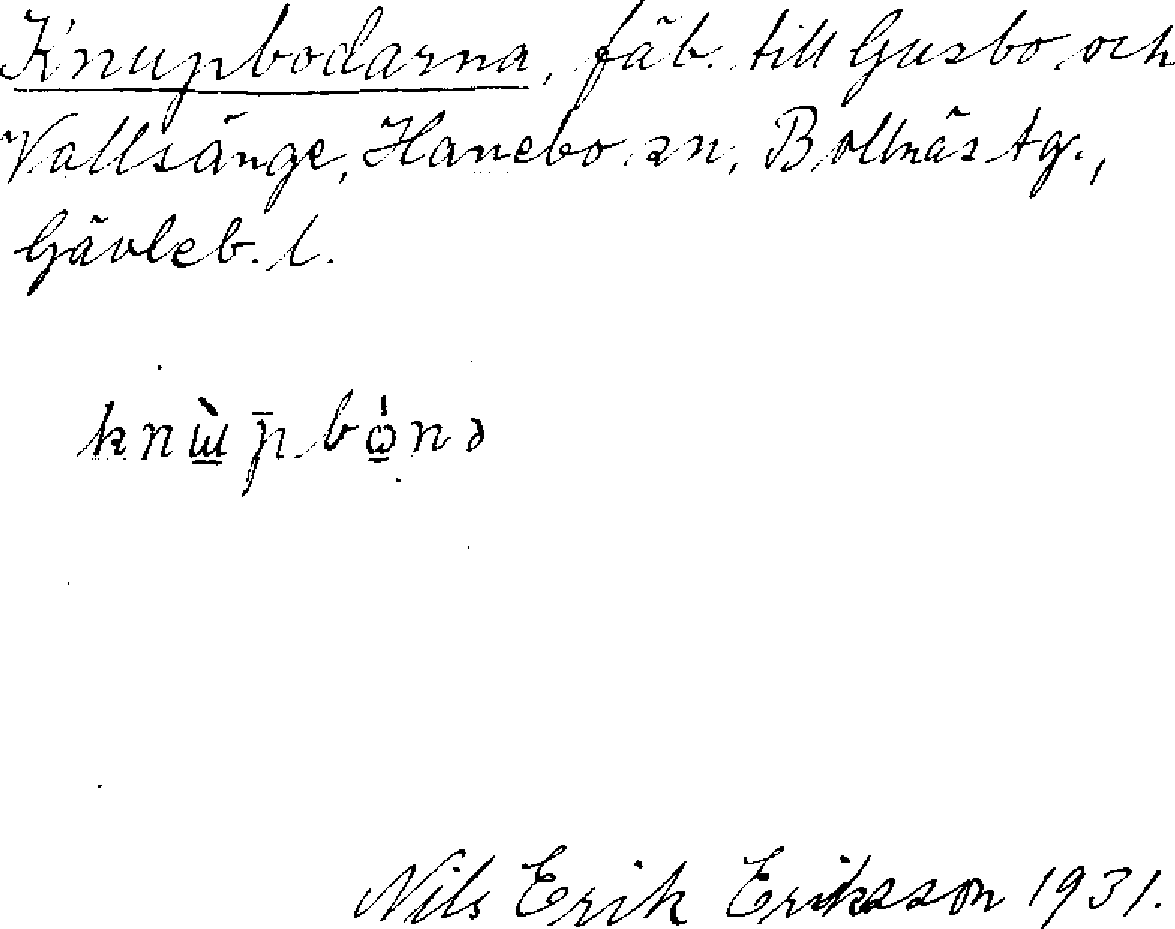 Knupbodarna, fäb. till Gusbo och
Vallsänge, Hanebo sn, Bollnäs tg.,
Gävleb. l.
knɯ̀p̄bó̱nə
Nils Erik Eriksson 1931.